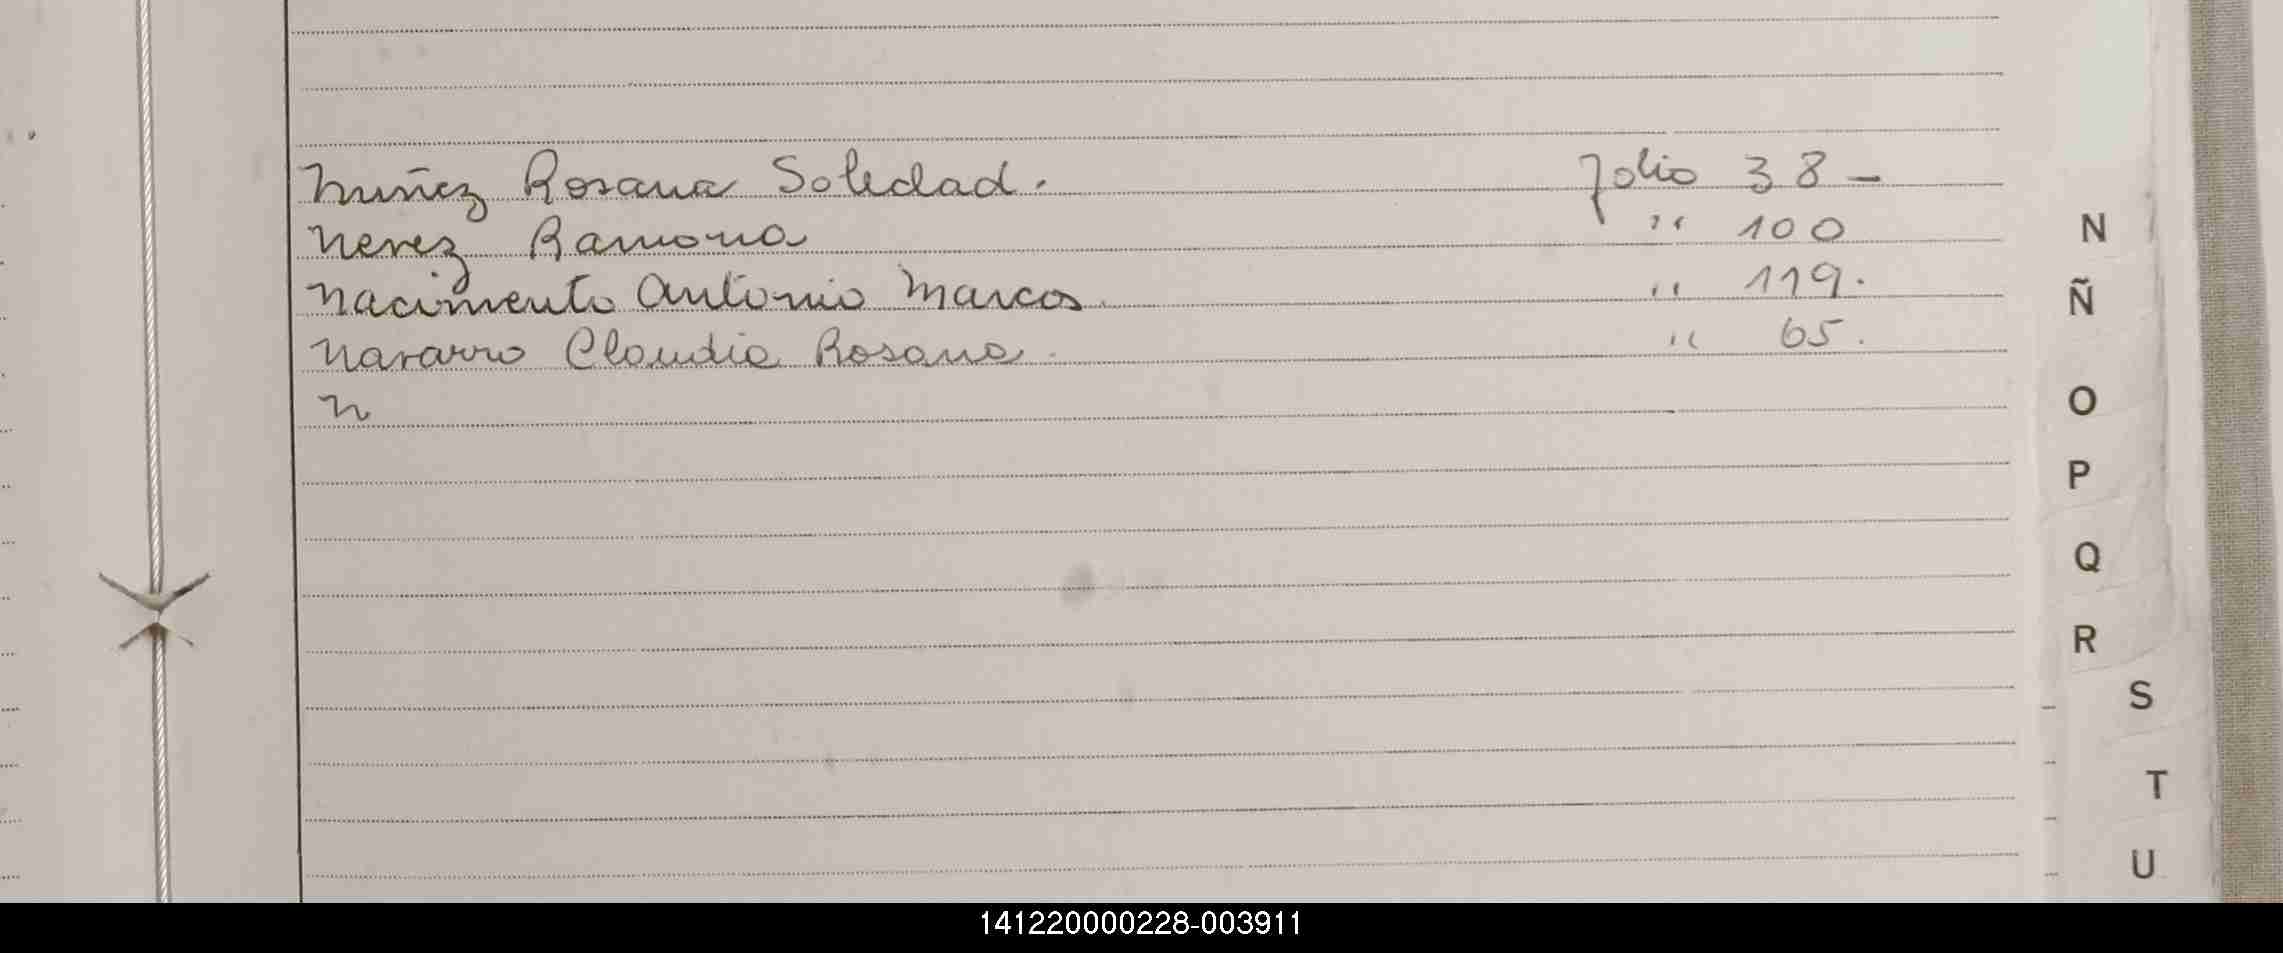 Nuñez Rosana Soledad. folio 38 -
Nerez Ramona " 100
Nacimento Antonio Marcos. " 119.
Navarro Claudia Rosana. " 65.
N
N
Ñ
O
P
Q
R
S
T
U
141220000228-003911